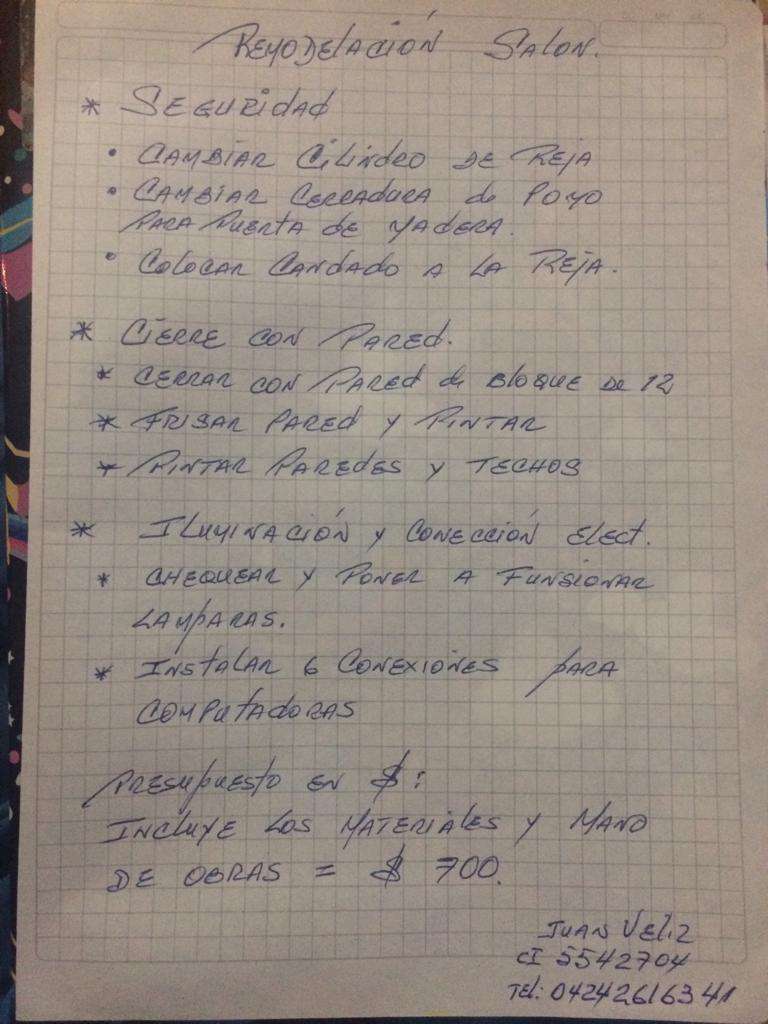 REMODELACIÓN SALON.
* SEGURIDAD
• CAMBIAR CILINDRO DE REJA
• CAMBIAR CERRADURA de POMO
PARA PUERTA DE MADERA.
• COLOCAR CANDADO A LA REJA.
* CIERRE CON PARED.
* CERRAR CON PARED de BLOQUE DE 12
* FRISAR PARED Y PINTAR
* PINTAR PAREDES Y TECHOS
* ILUMINACIÓN Y CONECCIÓN ELECT.
* CHEQUEAR Y PONER A FUNSIONAR
LAMPARAS.
* INSTALAR 6 CONEXIONES PARA
COMPUTADORAS
PRESUPUESTO EN $:
INCLUYE LOS MATERIALES Y MANO
DE OBRAS = $ 700.
JUAN VELIZ
CI 5542704
Tel: 04242616341